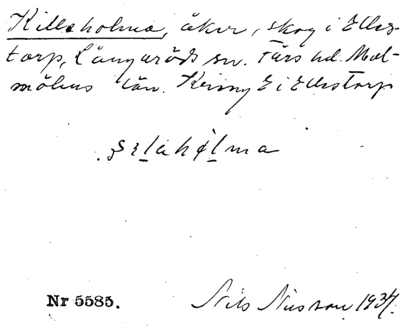 Killaholma, åker, skog i Elles-
torp, Långaröds sn. Färs hd. Mal-
möhus län. Kring E i Ellestorp
Nr 5585. Nils Nilsson 1937.